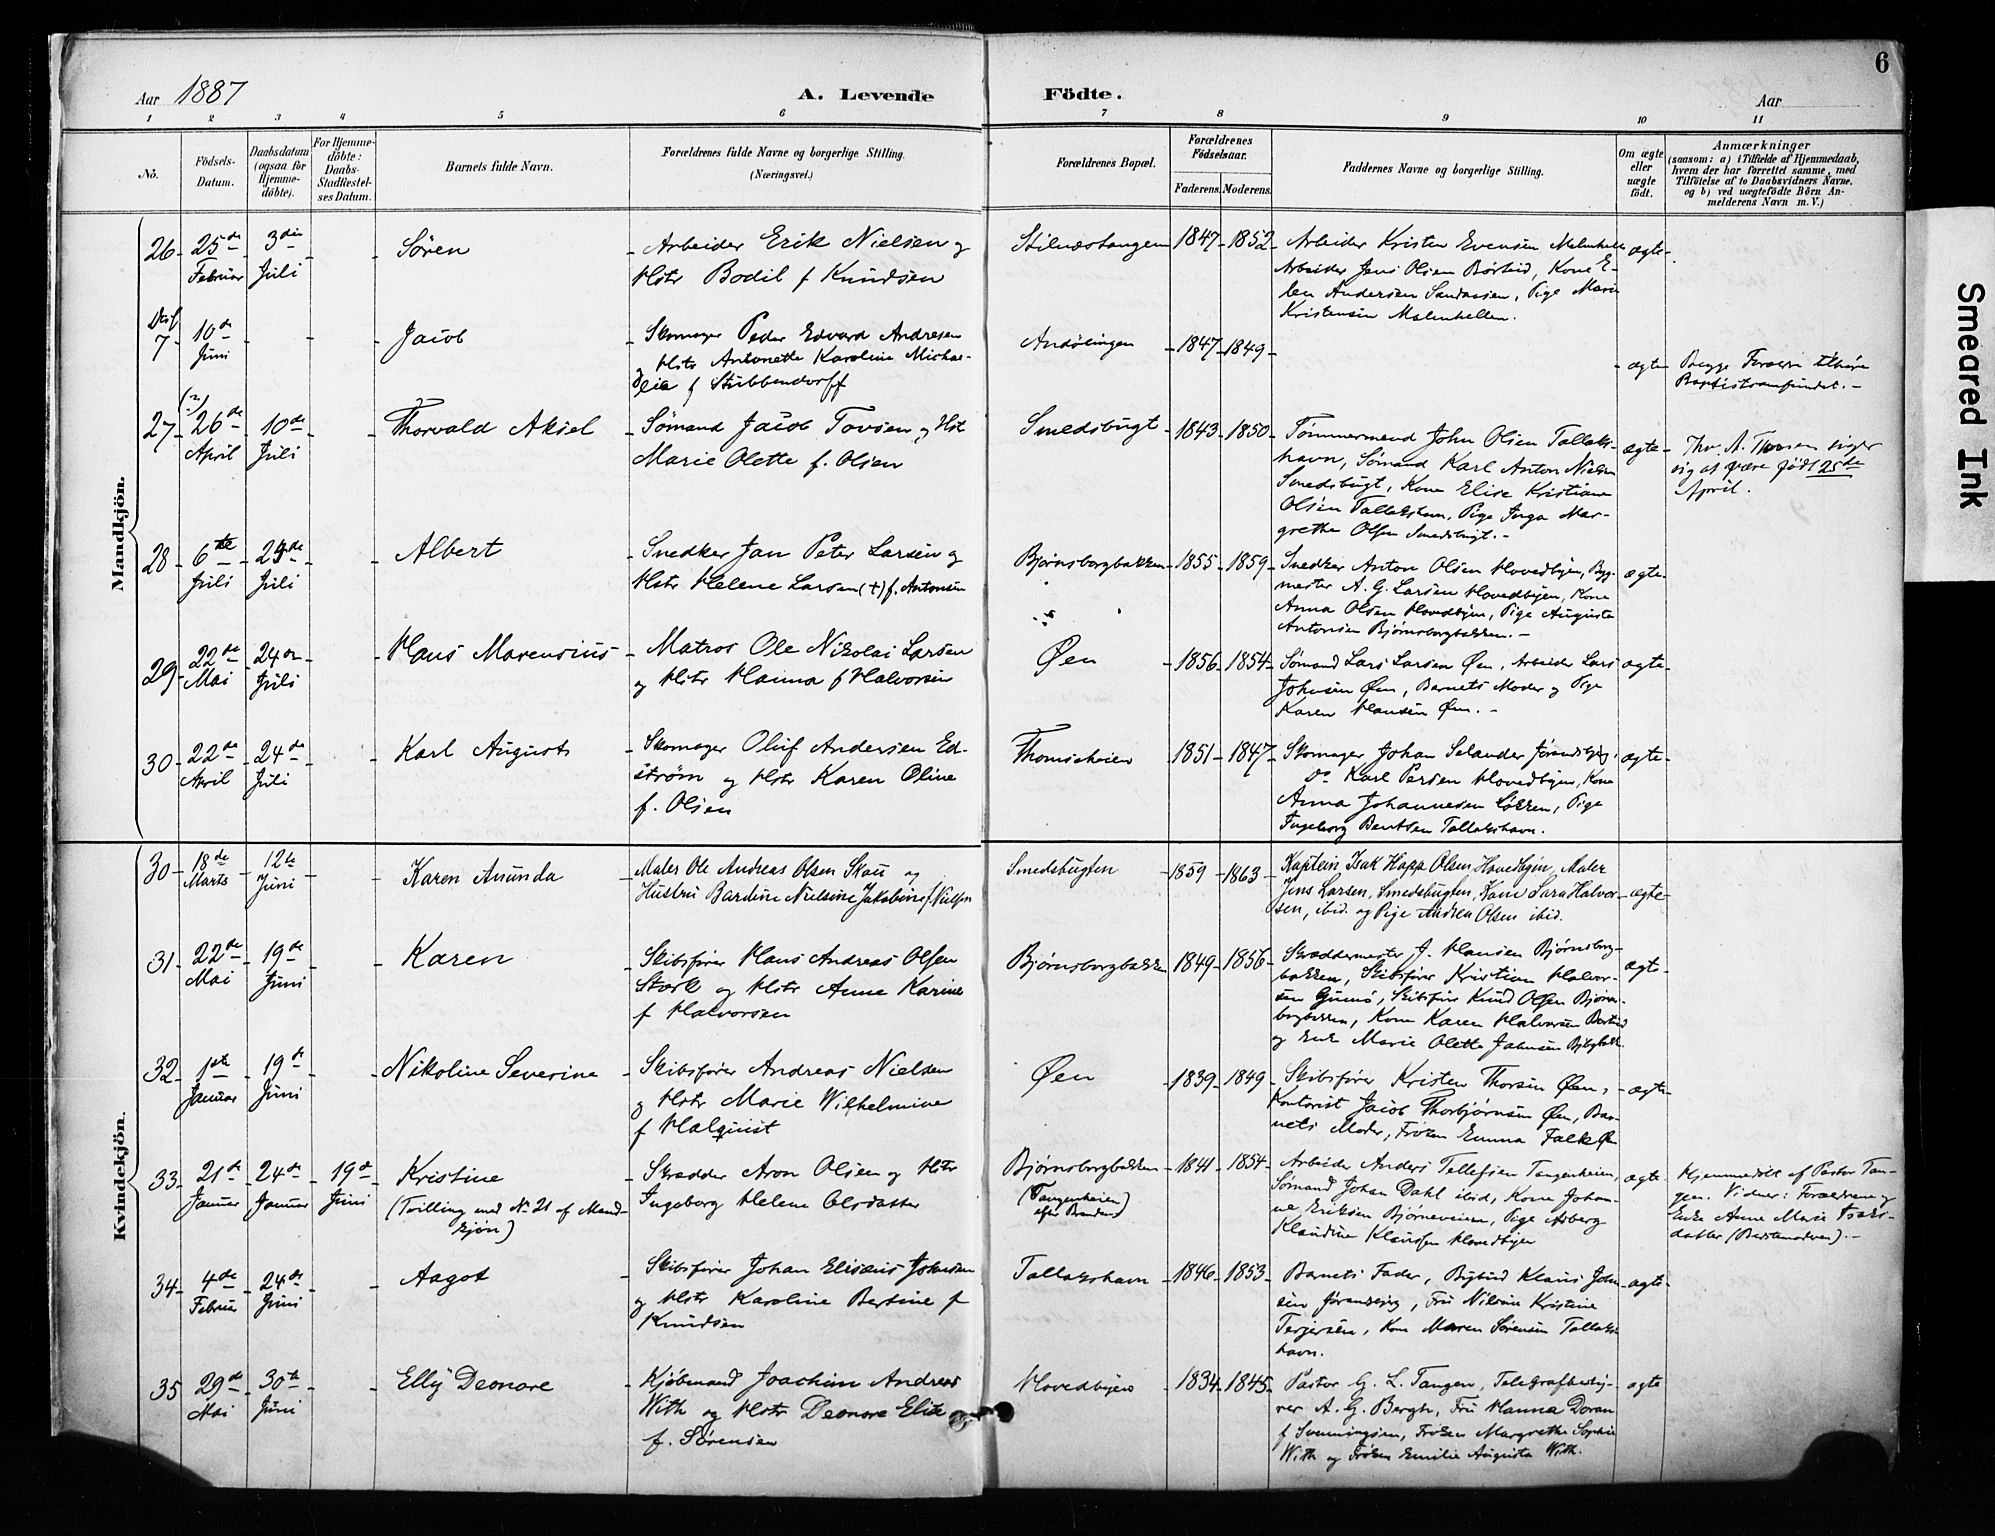 6
Aar 1887
A. Levende Födte.
Aar
1 2 3 4 5 6 7 8 9 10 11
No.
Födsels-Datum.
Daabsdatum (ogsaa for Hjemmedöbte).
For Hjemmedöbte: Daabs-Stadfæstelses Datum.
Barnets fulde Navn.
Forældrenes fulde Navne og borgerlige Stilling. (Næringsvei.)
Forældrenes Bopæl.
Forældrenes Födselsaar.
Faderens. Moderens.
Faddernes Navne og borgerlige Stilling.
Om ægte eller uægte födt.
Anmærkninger
(saasom: a) i Tilfælde af Hjemmedaab, hvem der har forrettet samme, med Tilföielse af to Daabsvidners Navne, og b) ved uægtefödte Börn Anmelderens Navn m. V.)
Mandkjön.
26 25de Februar 3die Juli Sören
Arbeider Erik Nielsen og
Hstr Bodil f Knudsen
1847 1852
Arbeider Kristen Evensen
Arbeider Jens Olsen Børtud, Kone El-
len Andersen Sandaasen, Pige Marie
Kristensen Malmhellen.
ægte
7 10de Juni Jacob
Skomager Peder Edvard Andresen
og Hstr Antonette Karoline Michae-
f Stubbendorff
Andölingen 1847 1849
ægte
Begge Forældre tilhøre
Baptistsamfundet.
27 26de April 10de Juli Thorvald Aksel
Sømand Jacob Tovsen og Hst
Marie Olette f. Olsen
Smedsbugt 1843 1850
Tømmermand John Olsen Tallaks-
havn, Sømand Karl Anton Nielsen
Smedsbugt, Kone Elise Kristiane
Olsen Tallakshavn, Pige Inga Mar-
grethe Olsen Smedsbugt.
ægte
Thv. A. Thorsen siger
sig at være født 25de
April.
28 6te Juli 24de Juli Albert
Snedker Jan Peter Larsen og
Hstr Helene Larsen (+) f. Antonsen
Bjørnsborgbakken 1855 1859
Snedker Anton Olsen Hovedbyen, Byg-
mester A. G. Larsen Hovedbyen, Kone
Anna Olsen Hovedbyen, Pige Augusta
Antonsen Bjørnsborgbakken.
ægte
29 22de Mai 24de Juli Hans Marensius
Matros Ole Nikolai Larsen
og Hstr Hanna f Halvorsen
Øen 1856 1854
Sømand Lars Larsen Øen, Arbeider Lars
Johnsen Øen, Barnets Moder og Pige
Karen Hansen Øen.
ægte
30 22de April 24de Juli Karl August
Skomager Oluf Andersen Ed-
strøm og Hstr Karen Oline
f. Olsen
Thomseheien 1851 1847
Skomager Johan Selander
Do Karl Persen Hovedbyen, Kone
Anna Johannesen Løkken, Pige
Ingeborg Bentsen Tallakshavn.
ægte
Kvindekjön.
30 18de Marts 12te Juni Karen Amunda
Maler Ole Andreas Olsen Skau og
Hustru Bardine Nielsine Jakobine f. Nielsen
Smedsbugten 1859 1863
Kaptein Isak Happ Olsen, Hovedbyen, Maler
Jens Larsen, Smedsbugten, Kone Sara Halvor-
sen, ibid. og Pige Andrea Olsen ibid.
ægte
31 22de Mai 19de Juni Karen
Skibsfører Hans Andreas Olsen
Stærk og Hstr Anne Karine
f Halvorsen
Bjørnsborgbakken 1849 1856
Skræddermester J. Hansen Bjørnsborg-
bakken, Skibsfører Kristian Halvor-
sen Gumø, Skibsfører Knud Olsen Bjørns-
borgbakken, Kone Karen Halvorsen
og Enke Marie Olette Johnsen
ægte
32 1ste Januar 19de Juni Nikoline Severine
Skibsfører Andreas Nielsen
og Hstr Marie Wilhelmine
f Malquist
Øen 1839 1849
Skibsfører Kristen Thorsen Øen,
Kontorist Jacob Thorbjørnsen Øen, Bar-
nets Moder, Frøken Emma Falk Øen
ægte
33 21de Januar 24de Januar 19de Juni Kristine
(Tvilling med No 21 af Mand-
kjøn)
Skrædder Aron Olsen og Hstr
Ingeborg Helene Olsdatter
Bjørnsborgbakken
(Tangenheien)
efter Branden)
1841 1854
Arbeider Anders Tellefsen Tangenheien,
Sømand Johan Dahl ibid, Kone Johan-
ne Eriksen Bjørneveien, Pige Asberg
Klandine Klausen Hovedbyen
ægte
Hjemmedøbt af Pastor Tan-
gen. Vidner: Forældrene og
Enke Anne Marie Isaks-
datter (Bedstemoderen).
34 4de Februar 24de Juni Aagot
Skibsfører Johan Elisæus Johnsen
og Hstr Karoline Bertine f
Knudsen
Tallakshavn 1846 1853
Barnets Fader, Bybud Klaus John-
sen, Fru Nilsine Kristine
Terjesen, Kone Maren Sørensen Tallaks-
havn.
ægte
35 29de Mai 30te Juni Elly Deonore
Kjøbmand Joachim Andreas
With og Hstr Deonore Elise
f. Sørensen
Hovedbyen 1834 1845
Pastor G. L. Tangen, Telegrafbesty-
rer A. G. Bergh, Fru Hanna Doran
f Svenningsen, Frøken Margrethe Sophie
With og Frøken Emilie Augusta With.
ægte
Smeared Ink